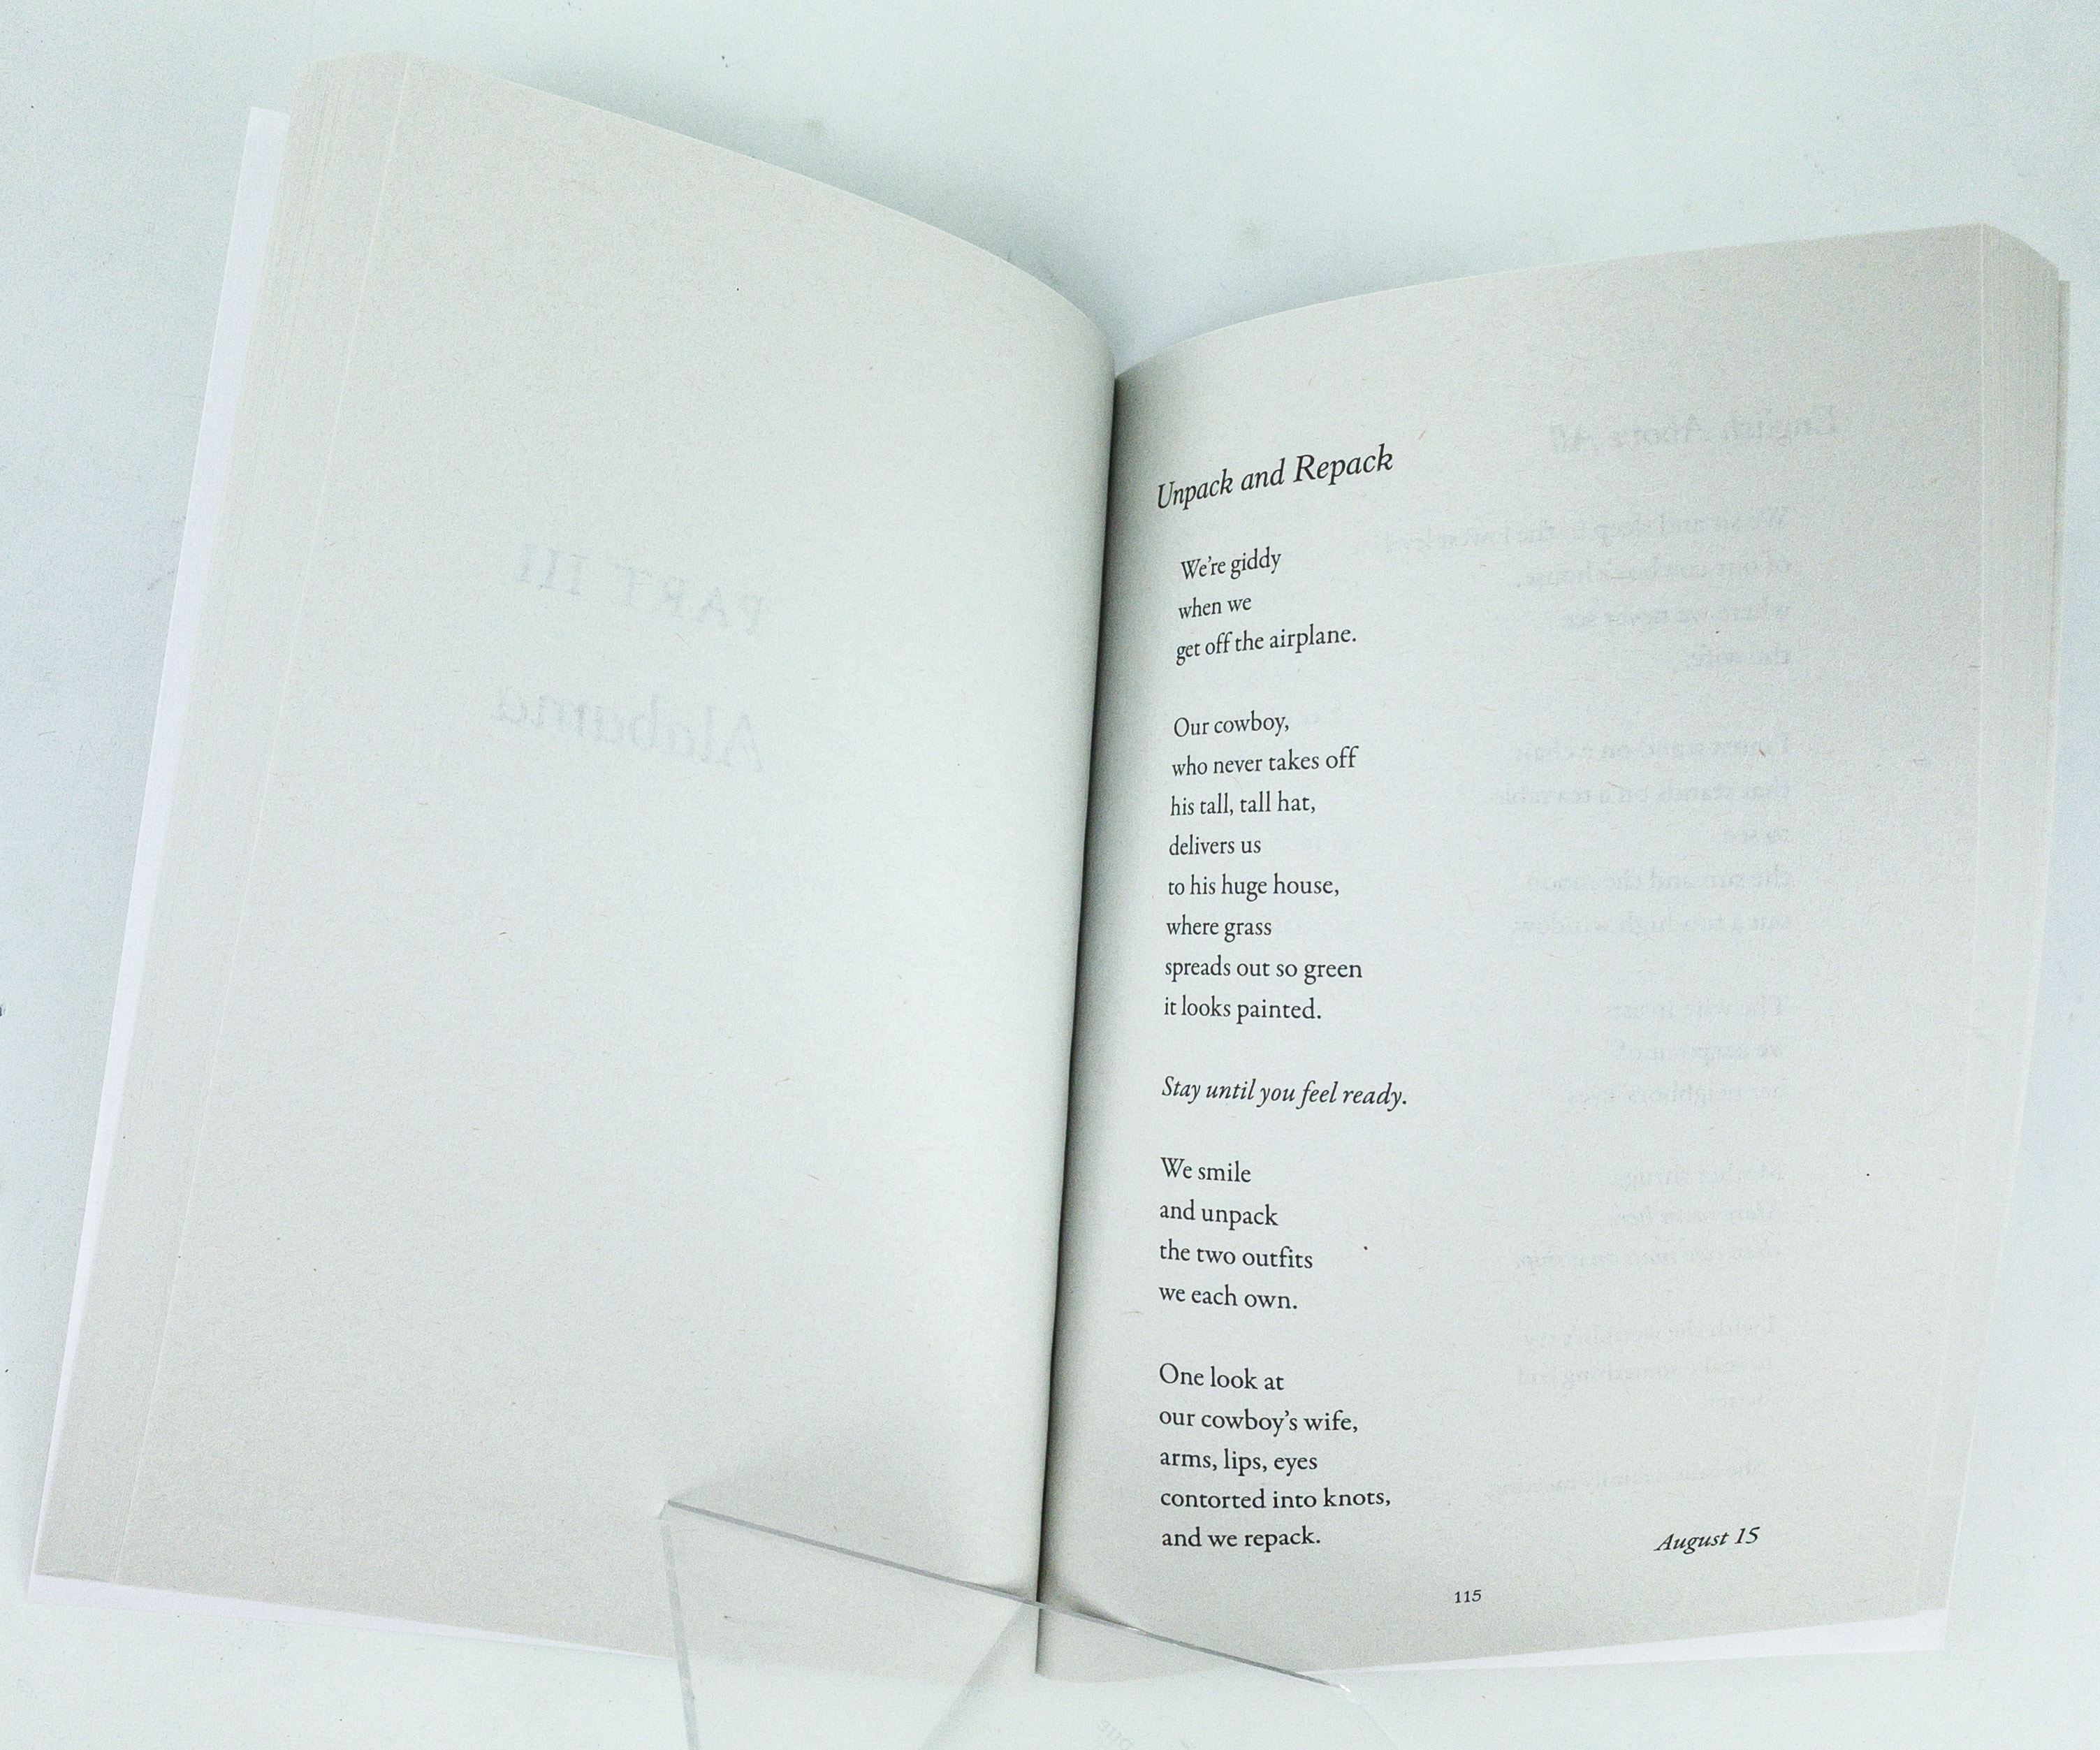 PART III
Alabama
Unpack and Repack
We're giddy
when we
get off the airplane.
Our cowboy,
who never takes off
his tall, tall hat,
delivers us
to his huge house,
where grass
spreads out so green
it looks painted.
Stay until you feel ready.
We smile
and unpack
the two outfits
we each own.
One look at
our cowboy's wife,
arms, lips, eyes
contorted into knots,
and we repack.
August 15
115